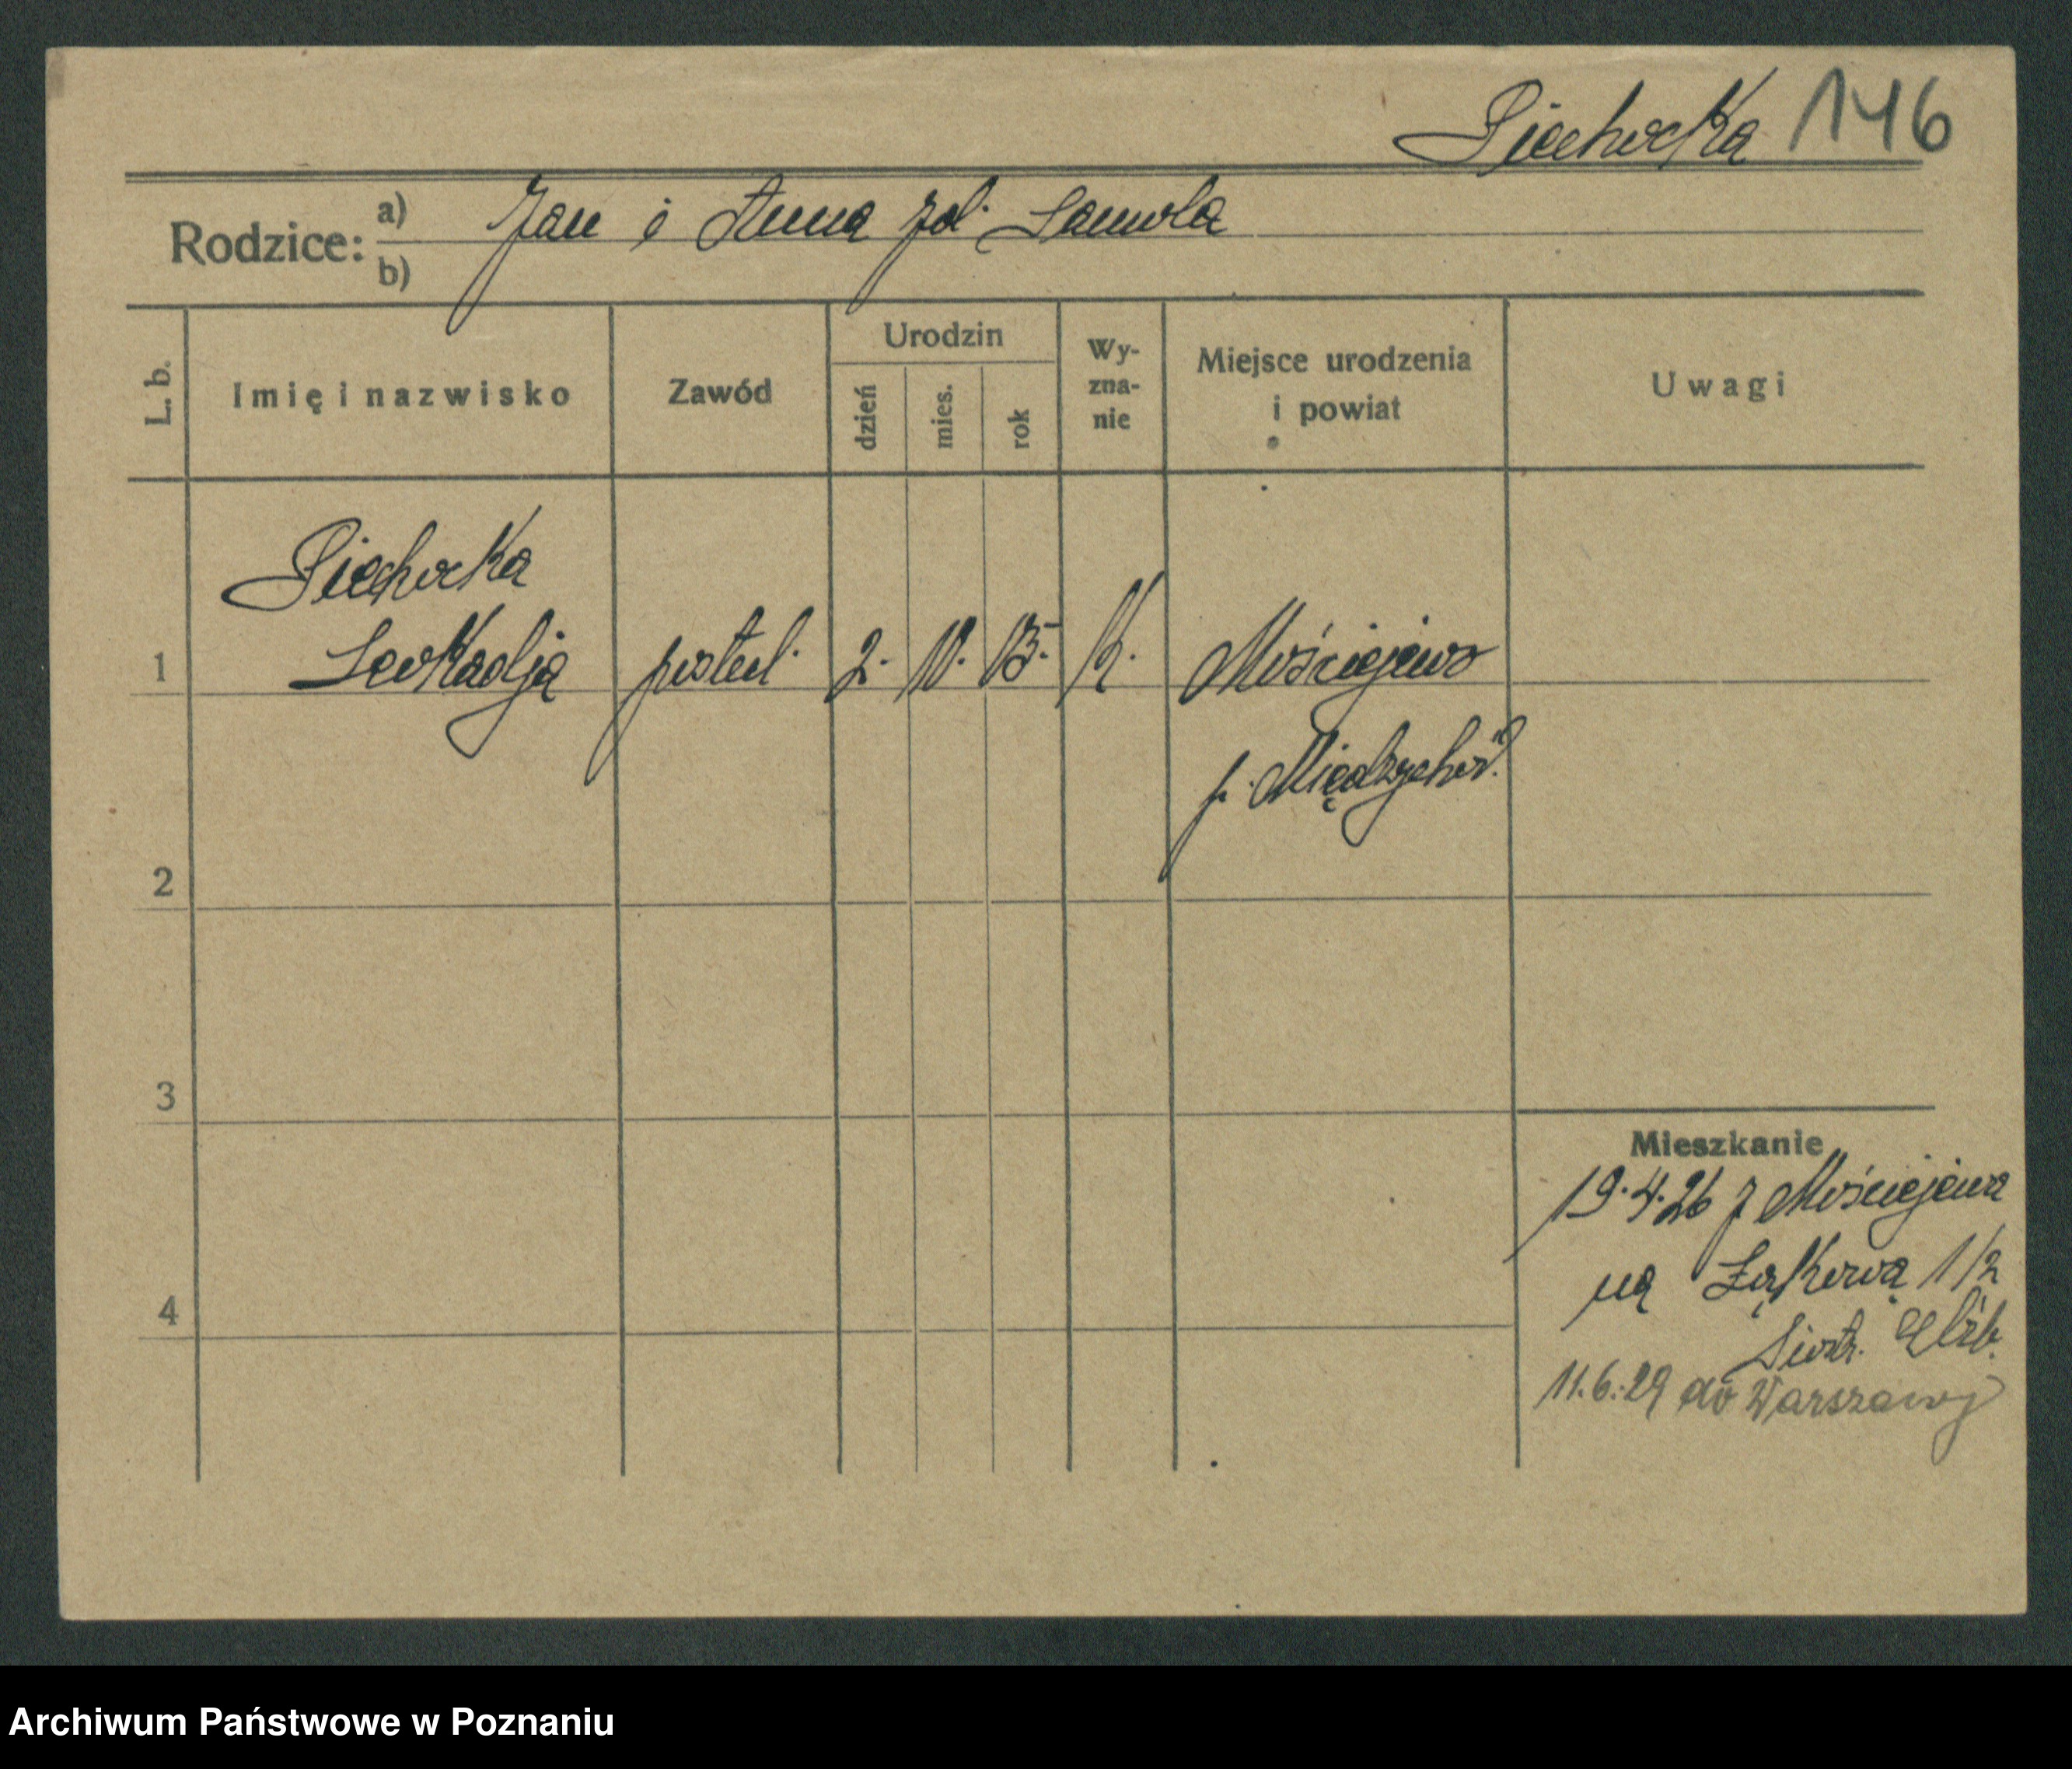 Piechocka 146
Rodzice: a) Jan i Anna zd. Samola
b)
L. b. Imię i nazwisko Zawód Urodzin dzień mies. rok Wy-zna-nie Miejsce urodzenia i powiat Uwagi
Piechocka
1 Leokadja 2. 10. 13. k. Mościejewo
p. Międzychód.
2
3
Mieszkanie
19.4.26 z Mościejewa
na Łąkową 1/2
4
Siostr. Elżb.
11.6.29 do Warszawy
Archiwum Państwowe w Poznaniu